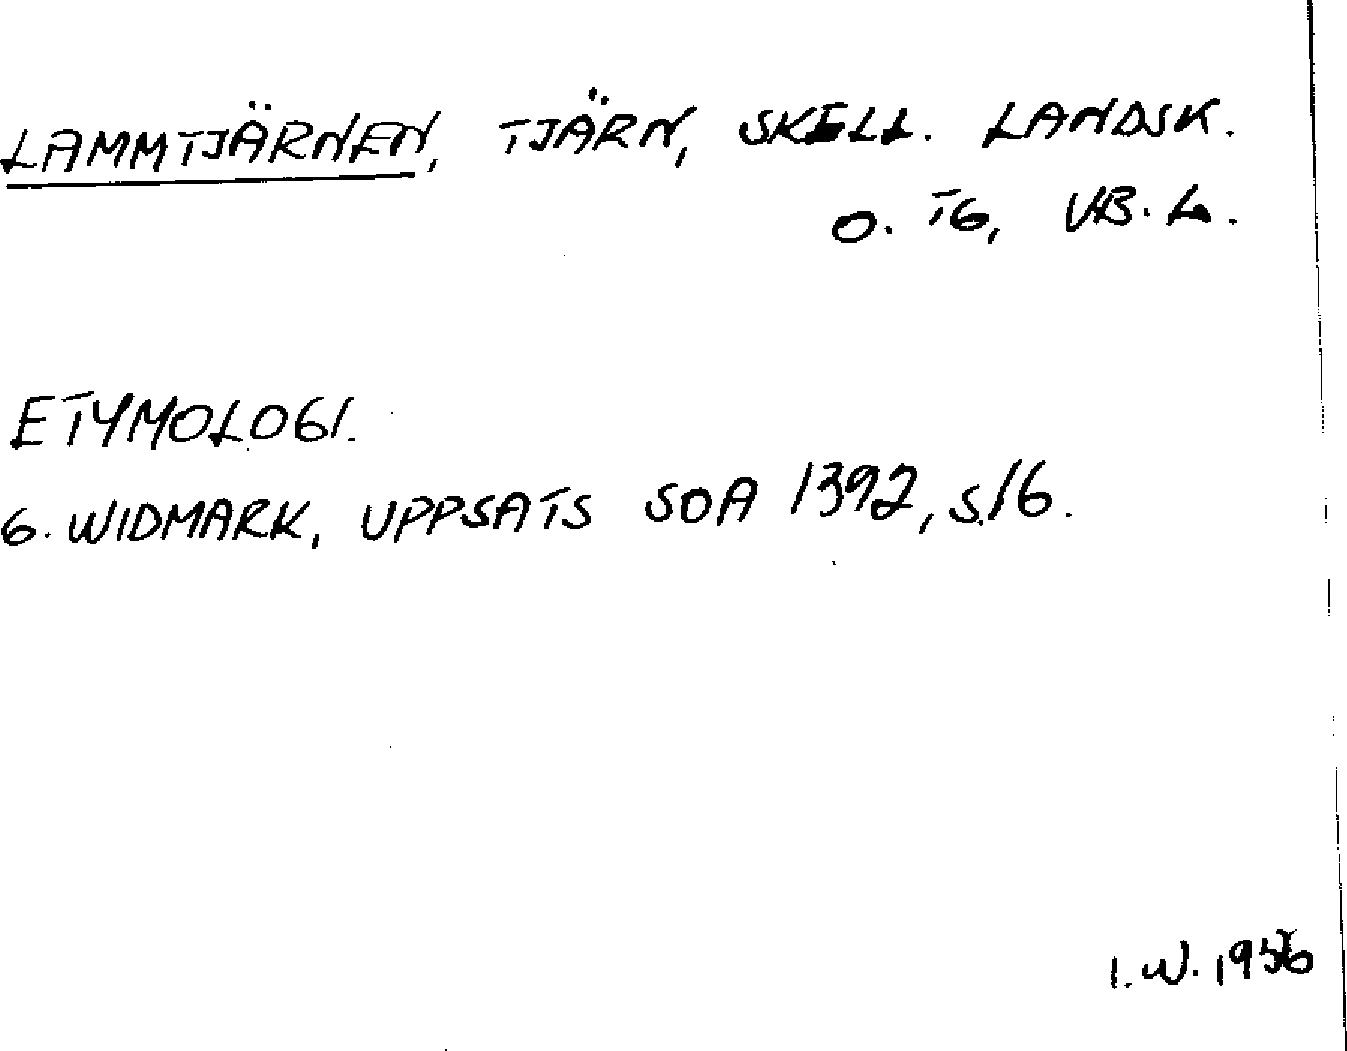 LAMMTJÄRNEN, TJÄRN, SKELL. LANDSK.
O. TG, VB. L.
ETYMOLOGI.
G. WIDMARK, UPPSATS SOA 1392, S. 16.
I. W. 1956